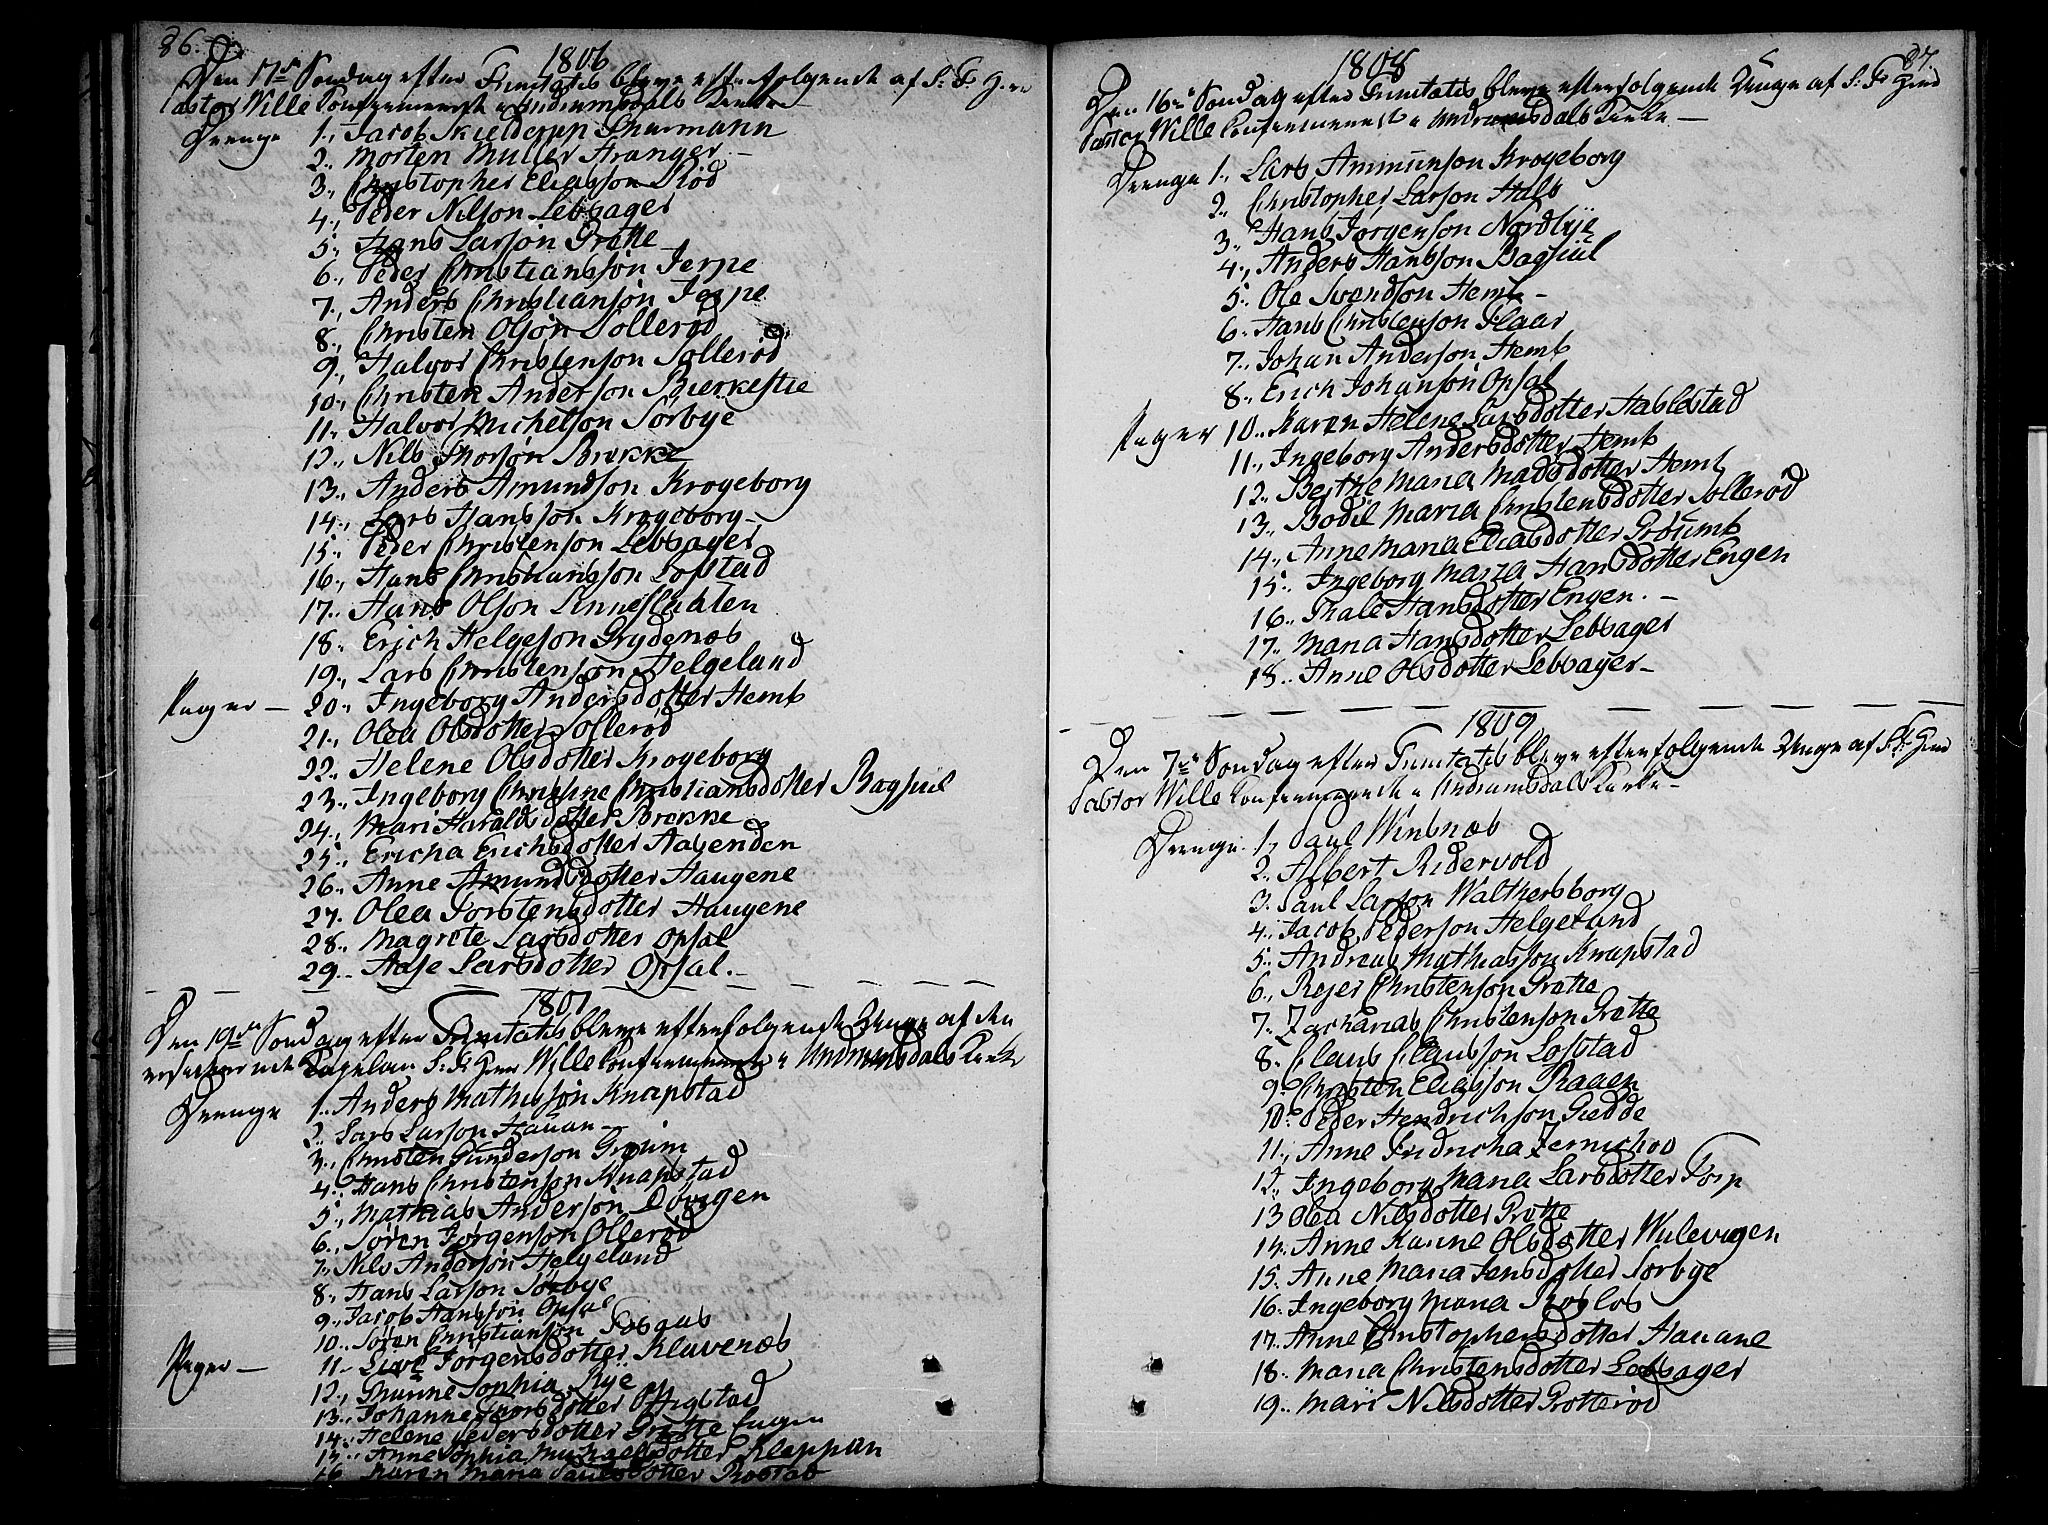 86.
1806
Den 17de Søndag efter Trinitatis bleve efterfølgende af S: T: Herr
Pastor Wille Confirmerede i Undrumsdals Kirke
Drenge 1., Jacob Skielderup Thurmann
2., Morten Müller Aranger –
3., Christopher Eliasson Rød
4., Peder Nilson Lebsager
5., Hans Larsøn Grotte
6., Peder Christianssøn Jerpe
7., Anders Christiansøn Jerpe
8., Christen Olsøn Sollerød
9., Halvor Christenson Sollerød
10., Christen Anderson Bierkestie
11., Halvor Michelson Sørbye
12., Nils Thorsøn Brekke
13., Anders Amundson Krogeborg
14., Lars Hansson Krogeborg –
15., Peder Christenson Lebsager
16., Hans Christiansson Lofstad
17., Hans Olson Linneslatten
18., Erich Helgeson Grydenæs
19., Lars Christenson Helgeland
Piger – 20., Ingeborg Andersdotter Hemb
21., Olea Olsdotter Sollerød
22., Helene Olsdotter Krogeborg
23., Ingeborg Christine Christiansdotter Bagsiul
24., Mari Haraldsdotter Brekke
25., Ericha Erichsdotter Hagenden
26., Anne Amundsdotter Haugene
27. Olea Torstensdotter Haugene
28., Magrete Larsdotter Opsal
29.. Aase Larsdotter Opsal. –
1807
Den 19de Søndag efter Trinitatis bleve efterfølgende Unge af den
Capelan S: T: Herr Wille Confirmerede i Undrumsdals Kirke
Drenge 1., Anders Mathisson Knapstad
2., Lars Larson Hauan –
3., Christen Gunderson Grøum
4., Hans Christenson Knapstad
5., Mathias Anderson Døvigen
6., Søren Jørgenson Ollerød
7., Nils Anderson Helgeland
8., Hans Larson Sørbye
9., Jacob Hansson Opsal
10., Søren Christianson Fosnæs
Piger – 11., Live Jorgensdotter Klavenæs
12., Gunne Sophia Rye
13., Johanne Thorsdotter Ottigstad
14., Helene Pedersdotter Grotte Engen
15., Anne Sophia Michaelsdotter Kleppan
16. Karen Maria Paulsdotter Robstad
87.
1808
Den 16de Søndag efter Trinitatis bleve efterfølgende Unge af S: T: Herr
Pastor Wille Confirmerede i Undrumsdals Kirke –
Drenge 1., Lars Ammunson Krogeborg
2., Christopher Larson Hals
3., Hans Jørgenson Nordbye
4., Anders Hansson Bagsiul
5., Ole Svendson Hemb –
6., Hans Christenson Flaar
7., Johan Anderson Hemb
8., Erich Johanson Opsal
Piger 10.. Karen Helene Larsdotter Haslestad
11., Ingeborg Andersdotter Hemb
12., Berthe Maria Madsdotter Hemb
13., Bodil Maria Christensdotter Sollerød
14., Anne Maria Eliasdotter Grøumb
15., Ingeborg Maria Hansdotter Engen
16., Thale Hansdotter Engen. –
17., Maria Hansdotter Lebsager
18.. Anne Olsdotter Lebsager –
1809
Den 7de Søndag efter Trinitatis bleve efterfølgende Unge af S: T: Herr
Pastor Wille Confirmerede i Undrumsdals Kirke –
Drenge. 1, Paul Winsnæs
2., Albert Ridervold
3. Paul Larson Walthersborg
4., Jacob Pederson Helgeland
5., Andreas Mathiasson Knapstad
6., Rejer Christenson Grotte
7., Zacharias Christenson Grotte
8., Claus Claussøn Lofstad
9., Christen Eliasson Raaen
10., Peder Hendrichson Giedde
11., Anne Fridricha Jernschoo
12., Ingeborg Maria Larsdotter Torp
13 Olea Nilsdotter Grotte
14., Anne Karine Olsdotter Wulevigen
15., Anne Maria Jensdotter Sørbye
16., Ingeborg Maria Roslos
17., Anne Christophersdotter Hauane
18., Maria Christensdotter Lebsager
19., Mari Nilsdotter Grotterød